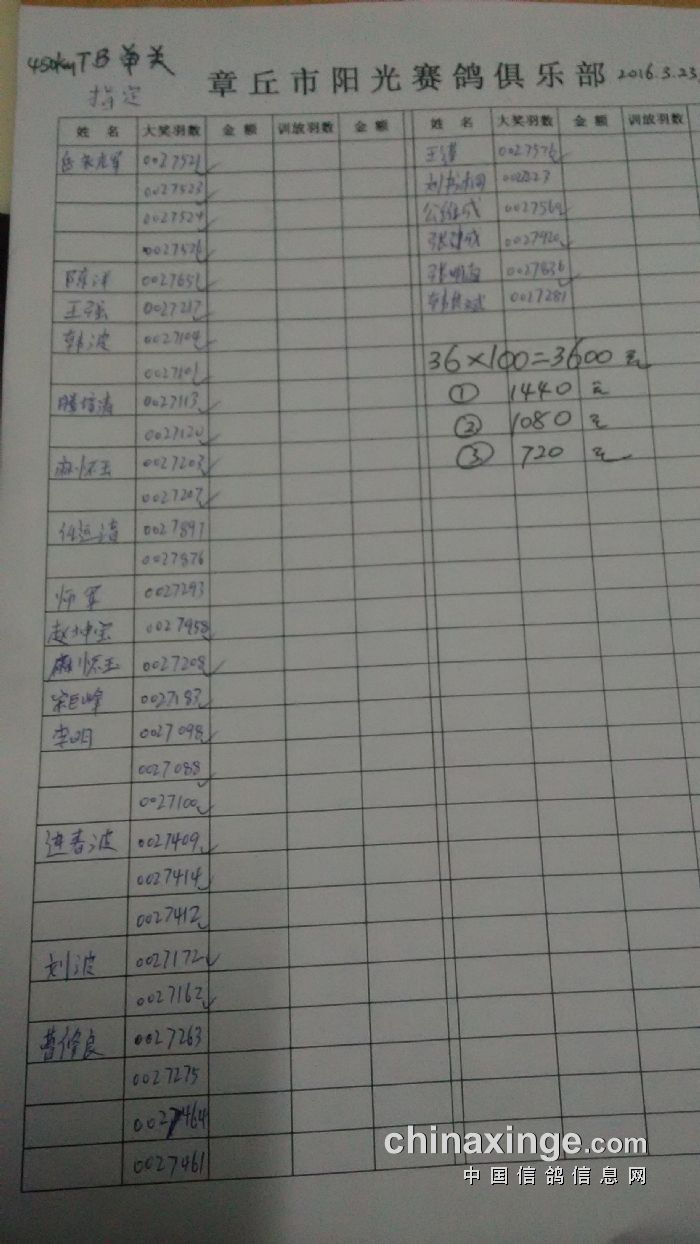 450km TB 单关
指定
章丘市阳光赛鸽俱乐部 2016.3.23
姓 名 大奖羽数 金 额 训放羽数 金 额 姓 名 大奖羽数 金 额 训放羽数
0027521
0027523
0027524
0027526
陈洋 0027651
王强 0027217
韩波 0027104
0027101
滕培涛 0027113
0027120
麻怀玉 0027203
0027207
任运清 0027897
0027876
师军 0027293
赵坤宝 0027958
麻怀玉 0027208
宋巨峰 0027183
李明 0027098
0027088
0027100
逯春波 0027409
0027414
0027412
刘波 0027172
0027162
曹修良 0027263
0027275
0027464
0027461
王 0027576
公维成 0027569
张 0027920
张明 0027836
韩 0027281
36×100=3600元
① 1440元
② 1080元
③ 720元
chinaxinge.com
中国信鸽信息网